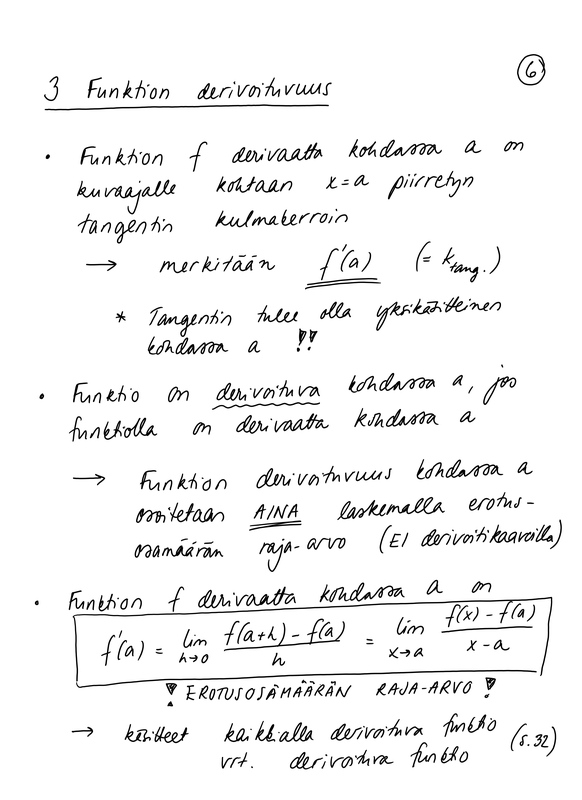 6
3 Funktion derivoituvuus
• Funktion f derivaatta kohdassa a on
kuvaajalle kohtaan x=a piirretyn
tangentin kulmakerroin
→ merkitään f'(a) (= k tang.)
* Tangentin tulee olla yksikäsitteinen
kohdassa a !!
• Funktio on derivoituva kohdassa a, jos
funktiolla on derivaatta kohdassa a
→ Funktion derivoituvuus kohdassa a
osoitetaan AINA laskemalla erotus-
osamäärän raja-arvo (EI derivoitikaavoilla)
• Funktion f derivaatta kohdassa a on
f'(a) = lim h→0 (f(a+h) - f(a))/h = lim x→a (f(x) - f(a))/(x - a)
! EROTUSOSAMÄÄRÄN RAJA-ARVO !
→ käsitteet kaikkialla derivoituva funktio (s.32)
vrt. derivoituva funktio